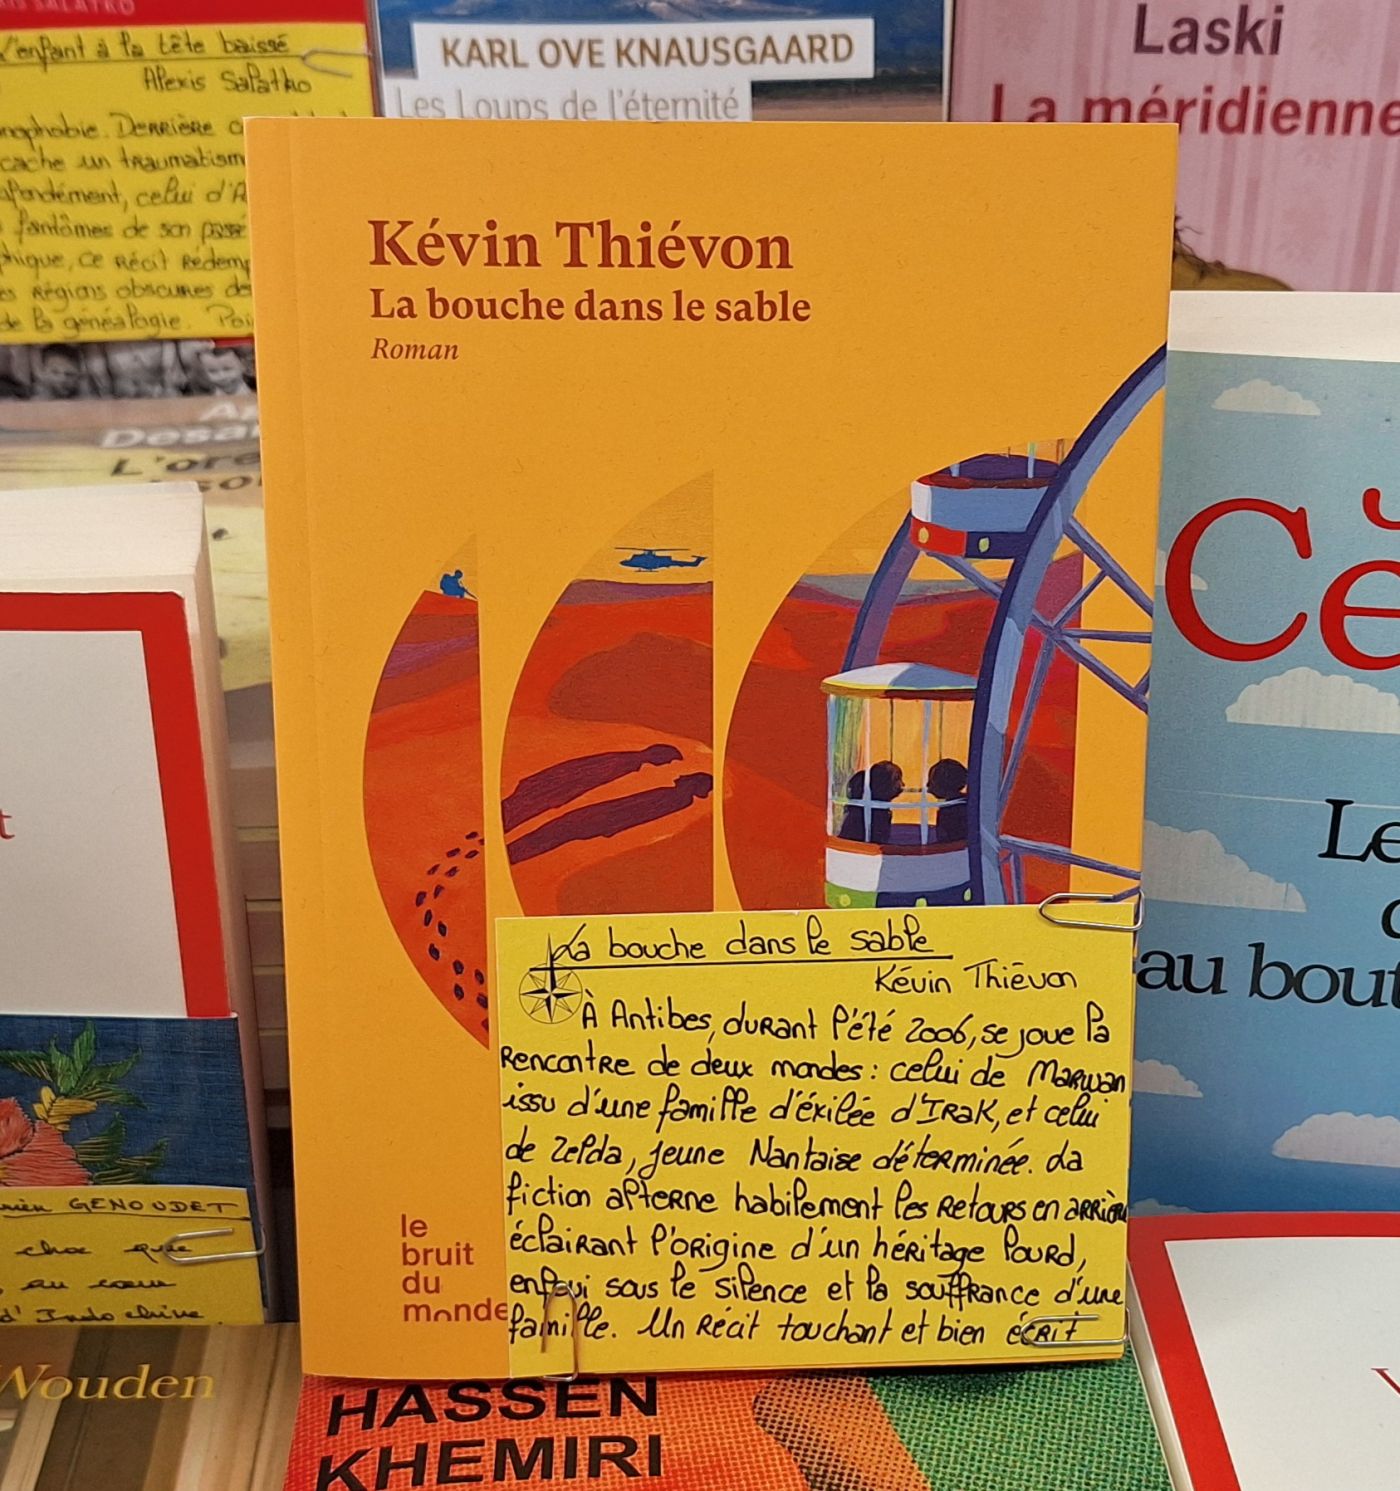 SALATKO
L'enfant à la tête baissé
Alexis Salatko
DERRIÈRE
cache un traumatism
celui d'A
fantômes de son passé
ce récit rédemp
es régions obscures de
de la généalogie. Poi
KARL OVE KNAUSGAARD
Les Loups de l'éternité
Laski
La méridienne
Desa
L'ore
Kévin Thiévon
La bouche dans le sable
Roman
Cè
Le
au bout
t
La bouche dans le sable
Kévin Thiévon
À Antibes, durant l'été 2006, se joue la
rencontre de deux mondes : celui de Marwan
issu d'une famille d'éxilée d'Irak, et celui
de Zelda, jeune Nantaise déterminée. La
fiction alterne habilement les retours en arrière
éclairant l'origine d'un héritage lourd,
enfoui sous le silence et la souffrance d'une
famille. Un récit touchant et bien écrit
le
bruit
du
monde
GENOUDET
choc que
au cœur
d'Indochine.
Wouden
HASSEN
KHEMIRI